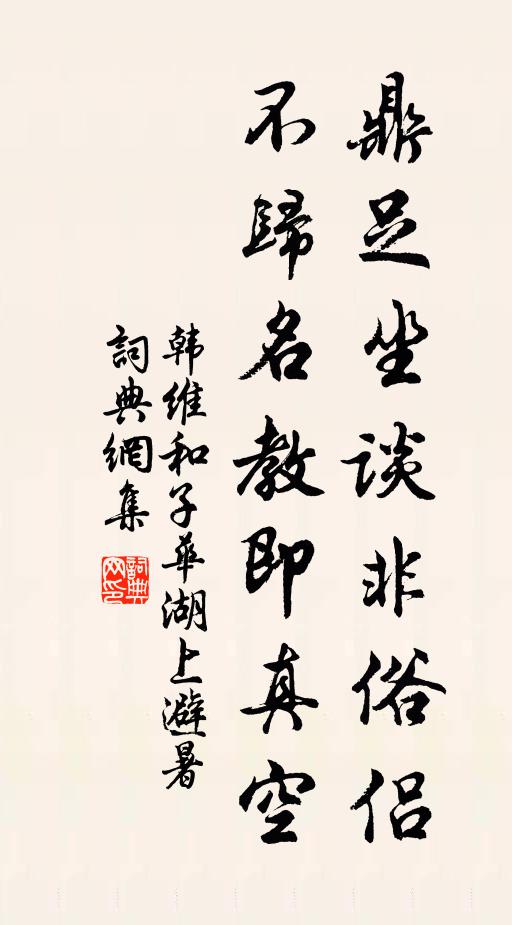 鼎足坐談非俗侣
不歸名教即真空
韩維和子華湖上避暑
詞典網集
詞典网印